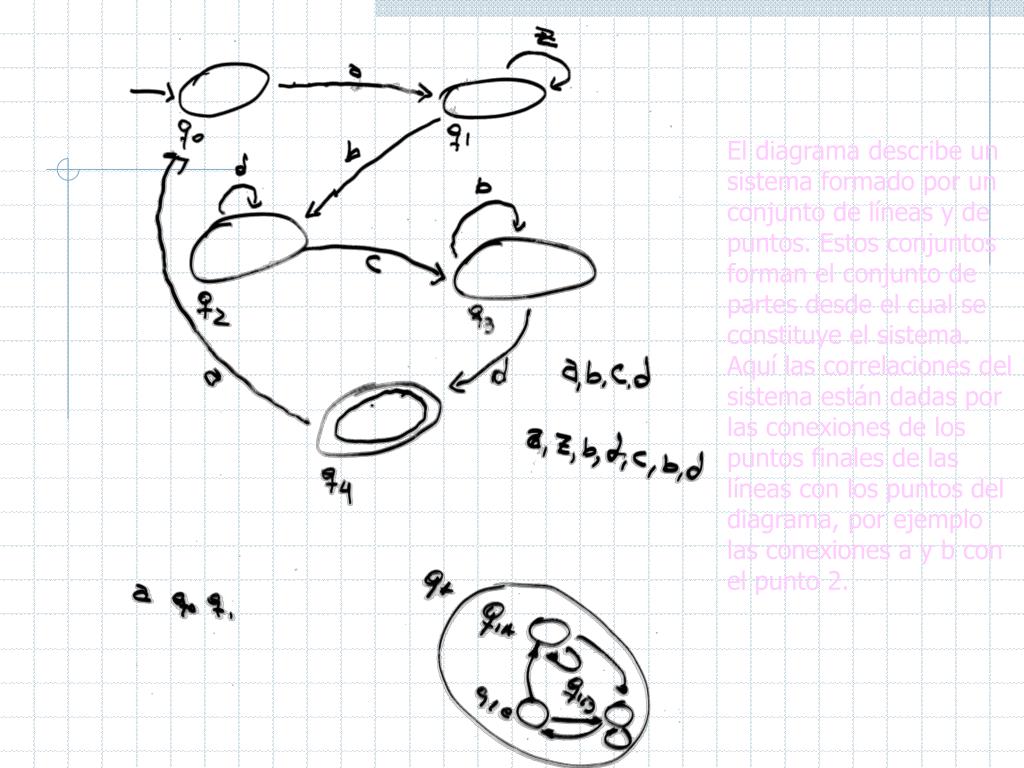 z
a
q0
q1
b
d
b
c
q2
q3
a
d
a,b,c,d
a,z,b,d,c,b,d
q4
a q0 q1
El diagrama describe un
sistema formado por un
conjunto de líneas y de
puntos. Estos conjuntos
forman el conjunto de
partes desde el cual se
constituye el sistema.
Aquí las correlaciones del
sistema están dadas por
las conexiones de los
puntos finales de las
líneas con los puntos del
diagrama, por ejemplo
las conexiones a y b con
el punto 2.